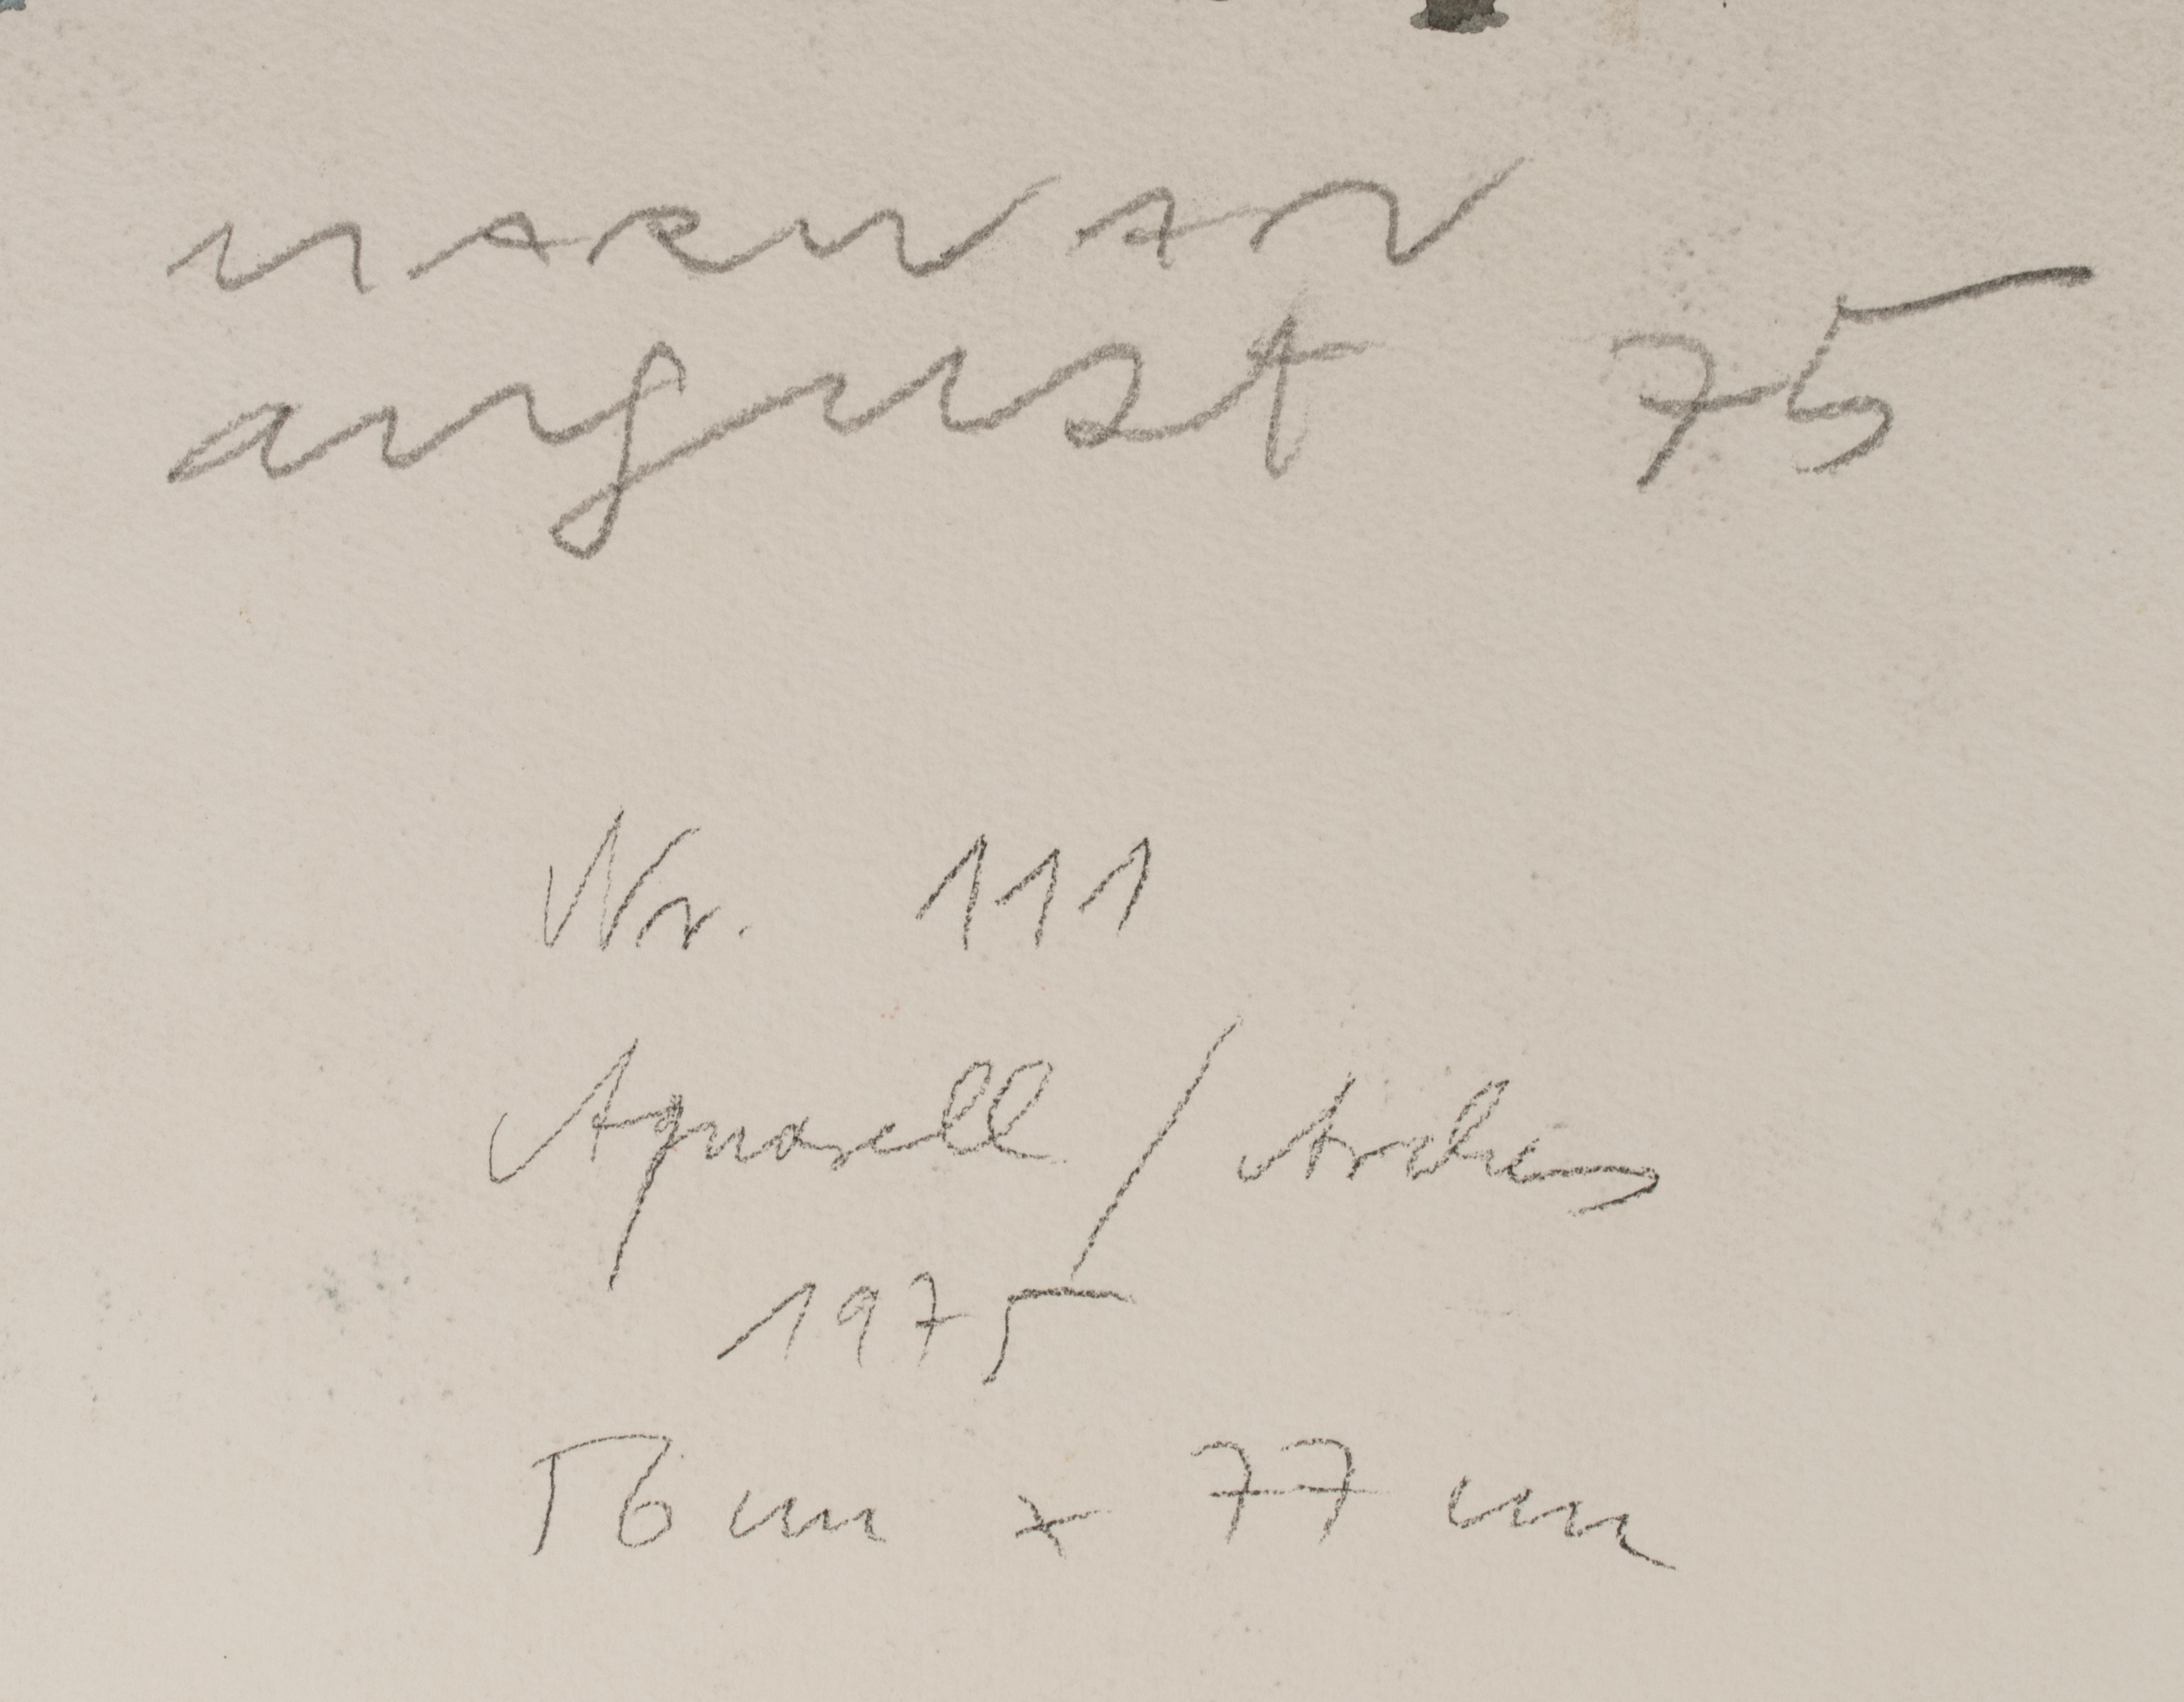 MARWAN
august 75
Nr. 111
Aquarell / Arches
1975
56 cm x 77 cm